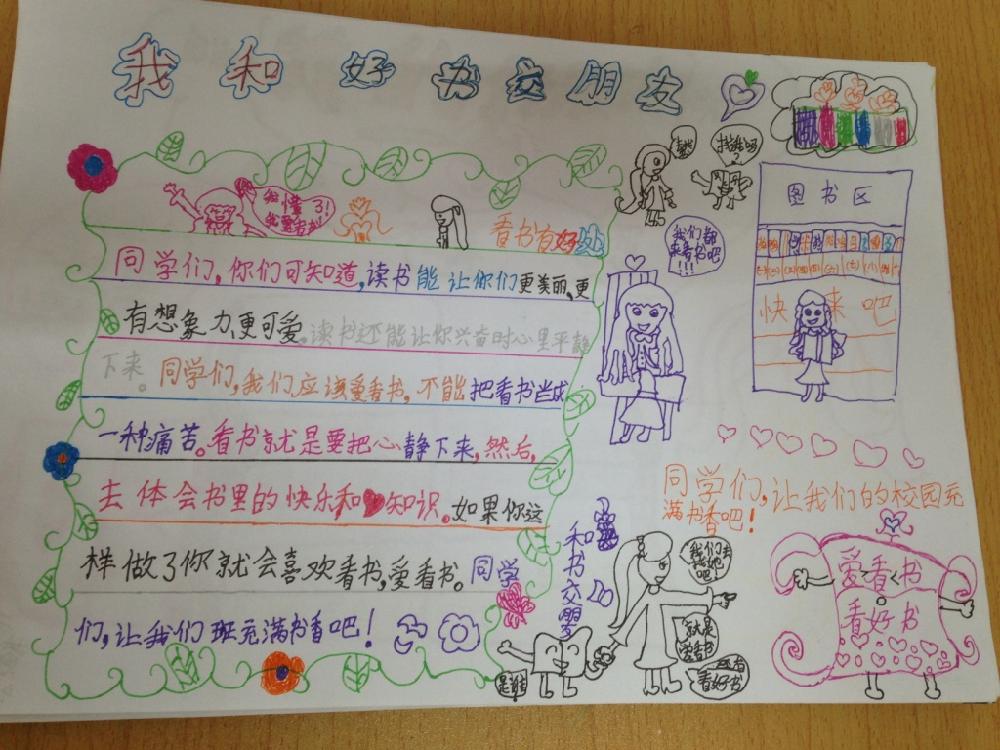 我和好书交朋友
我懂了!
我要看书!
看书有好处
同学们,你们可知道,读书能让你们更美丽,更
有想象力,更可爱。读书还能让你兴奋时心里平静
下来。同学们,我们应该爱看书,不能把看书当成
一种痛苦。看书就是要把心静下来,然后,
去体会书里的快乐和知识。如果你这
样做了你就会喜欢看书,爱看书。同学
们,让我们班充满书香吧!
找谁吗
?
我们都
来看书吧
!!!
图书区
快来吧
同学们,让我们的校园充
满书香吧!
和书交朋友
我们去
找她
吧!
是谁
看好书
爱看书
看好书